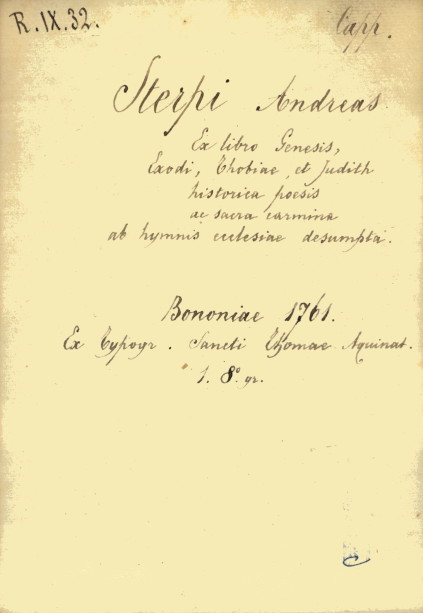 R. IX. 32.
Capp.
Sterpi Andreas
Ex libro Genesis,
Exodi, Thobiae, et Judith
historica poesis
ac sacra carmina
ab hymnis ecclesiae desumpta.
Bononiae 1761.
Ex Typogr. Sancti Thomae Aquinat.
1. 8º. gr.